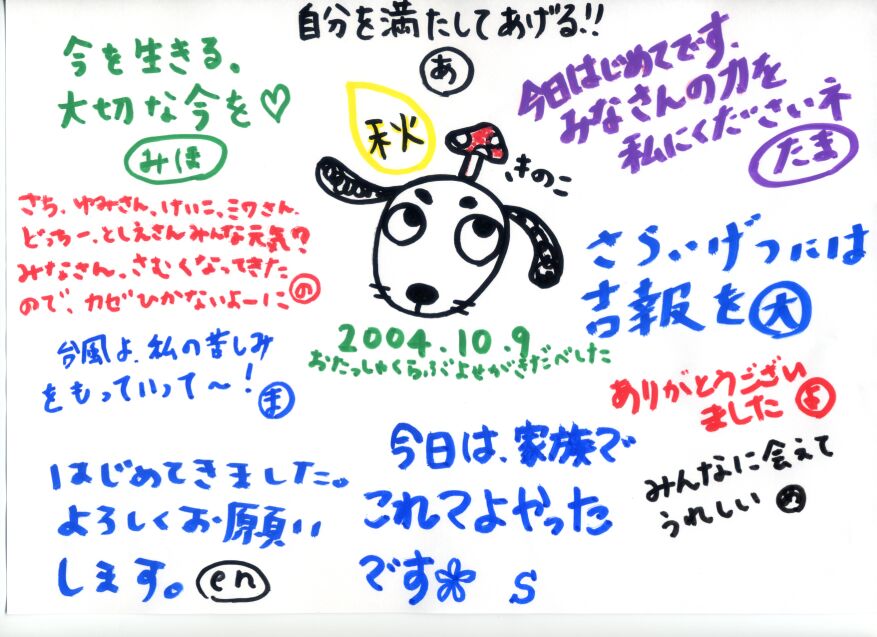 自分を満たしてあげる!!
あ
今を生きる、
大切な今を♡
みほ
今日はじめてです、
みなさんの力を
私にくださいネ
たま
秋
きのこ
さち、ゆみさん、けいこ、ミワさん、
どっちー、としえさんみんな元気?
みなさん、さむくなってきた
ので、カゼひかないよーに
の
さらいげつには
吉報を 大
2004.10.9
おたっしゃくらぶよせがきだべした
台風よ、私の苦しみ
をもっていって〜!
ま
ありがとうござい
ました よ
今日は、家族で
これてよかった
です
S
みんなに会えて
うれしい め
はじめてきました。
よろしくお願い
します。 en